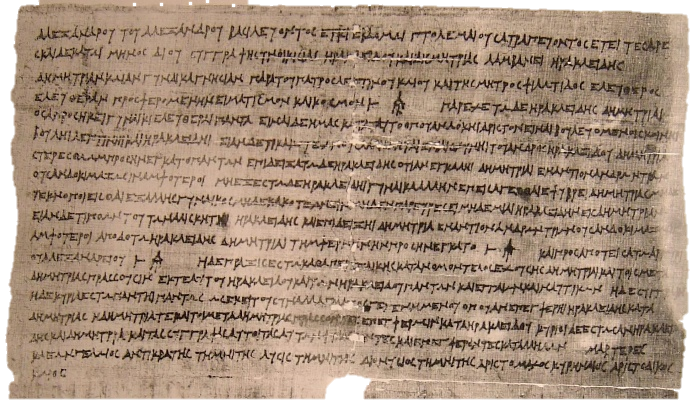 ΑΛΕΞΑΝΔΡΟΥ ΤΟΥ ΑΛΕΞΑΝΔΡΟΥ ΒΑΣΙΛΕΥΟΝΤΟΣ ΕΤΕΙ ΕΒΔΟΜΩΙ ΠΤΟΛΕΜΑΙΟΥ ΣΑΤΡΑΠΕΥΟΝΤΟΣ ΕΤΕΙ ΤΕΣΣΑΡΕ
ΣΚΑΙΔΕΚΑΤΩΙ ΜΗΝΟΣ ΔΙΟΥ ΣΥΓΓΡΑΦΗ ΣΥΝΟΙΚΙΣΙΑΣ ΗΡΑΚΛΕΙΔΟΥ ΚΑΙ ΔΗΜΗΤΡΙΑΣ ΛΑΜΒΑΝΕΙ ΗΡΑΚΛΕΙΔΗΣ
ΔΗΜΗΤΡΙΑΝ ΚΩΙΑΝ ΓΥΝΑΙΚΑ ΓΝΗΣΙΑΝ ΠΑΡΑ ΤΟΥ ΠΑΤΡΟΣ ΛΕΠΤΙΝΟΥ ΚΩΙΟΥ ΚΑΙ ΤΗΣ ΜΗΤΡΟΣ ΦΙΛΩΤΙΔΟΣ ΕΛΕΥΘΕΡΟΣ
ΕΛΕΥΘΕΡΑΝ ΠΡΟΣΦΕΡΟΜΕΝΗΝ ΕΙΜΑΤΙΣΜΟΝ ΚΑΙ ΚΟΣΜΟΝ ⊢ Α ΠΑΡΕΧΕΤΩ ΔΕ ΗΡΑΚΛΕΙΔΗΣ ΔΗΜΗΤΡΙΑΙ
ΟΣΑ ΠΡΟΣΗΚΕΙ ΓΥΝΑΙΚΙ ΕΛΕΥΘΕΡΑΙ ΠΑΝΤΑ ΕΙΝΑΙ ΔΕ ΗΜΑΣ ΚΑΤΑ ΤΑΥΤΟ ΟΠΟΥ ΑΝ ΔΟΚΗΙ ΑΡΙΣΤΟΝ ΕΙΝΑΙ ΒΟΥΛΕΥΟΜΕΝΟΙΣ ΚΟΙΝΗΙ
ΒΟΥΛΗΙ ΛΕΠΤΙΝΗΙ ΚΑΙ ΗΡΑΚΛΕΙΔΗΙ ΕΙΑΝ ΔΕ ΤΙ ΚΑΚΟΤΕΧΝΟΥΣΑ ΑΛΙΣΚΗΤΑΙ ΕΠΙ ΑΙΣΧΥΝΗΙ ΤΟΥ ΑΝΔΡΟΣ ΗΡΑΚΛΕΙΔΟΥ ΔΗΜΗΤΡΙΑ
ΣΤΕΡΕΣΘΩ ΩΜ ΠΡΟΣΗΝΕΓΚΑΤΟ ΠΑΝΤΩΝ ΕΠΙΔΕΙΞΑΤΩ ΔΕ ΗΡΑΚΛΕΙΔΗΣ ΟΤΙ ΑΝ ΕΓΚΑΛΗΙ ΔΗΜΗΤΡΙΑΙ ΕΝΑΝΤΙΟΝ ΑΝΔΡΩΝ ΤΡΙΩΝ
ΟΥΣ ΑΝ ΔΟΚΙΜΑΖΩΣΙΝ ΑΜΦΟΤΕΡΟΙ ΜΗ ΕΞΕΣΤΩ ΔΕ ΗΡΑΚΛΕΙΔΗΙ ΓΥΝΑΙΚΑ ΑΛΛΗΝ ΕΠΕΙΣΑΓΕΣΘΑΙ ΕΦ ΥΒΡΕΙ ΔΗΜΗΤΡΙΑΣ ΜΗΔΕ
ΤΕΚΝΟΠΟΙΕΙΣΘΑΙ ΕΞ ΑΛΛΗΣ ΓΥΝΑΙΚΟΣ ΜΗΔΕ ΚΑΚΟΤΕΧΝΕΙΝ ΜΗΔΕΝ ΠΑΡΕΥΡΕΣΕΙ ΜΗΔΕΜΙΑΙ ΗΡΑΚΛΕΙΔΗΝ ΕΙΣ ΔΗΜΗΤΡΙΑΝ
ΕΙΑΝ ΔΕ ΤΙ ΠΟΩΝ ΤΟΥΤΩΝ ΑΛΙΣΚΗΤΑΙ ΗΡΑΚΛΕΙΔΗΣ ΚΑΙ ΕΠΙΔΕΙΞΗΙ ΔΗΜΗΤΡΙΑ ΕΝΑΝΤΙΟΝ ΑΝΔΡΩΝ ΤΡΙΩΝ ΟΥΣ ΑΝ ΔΟΚΙΜΑΖΩΣΙΝ
ΑΜΦΟΤΕΡΟΙ ΑΠΟΔΟΤΩ ΗΡΑΚΛΕΙΔΗΣ ΔΗΜΗΤΡΙΑΙ ΤΗΜ ΦΕΡΝΗΝ ΗΝ ΠΡΟΣΗΝΕΓΚΑΤΟ ⊢ Α ΚΑΙ ΠΡΟΣΑΠΟΤΕΙΣΑΤΩ ΑΡΓΥΡΙ
ΟΥ ΑΛΕΞΑΝΔΡΕΙΟΥ ⊢ Α Η ΔΕ ΠΡΑΞΙΣ ΕΣΤΩ ΚΑΘΑΠΕΡ ΕΓ ΔΙΚΗΣ ΚΑΤΑ ΝΟΜΟΝ ΤΕΛΟΣ ΕΧΟΥΣΗΣ ΔΗΜΗΤΡΙΑΙ ΚΑΙ ΤΟΙΣ ΜΕΤΑ
ΔΗΜΗΤΡΙΑΣ ΠΡΑΣΣΟΥΣΙΝ ΕΚ ΤΕ ΑΥΤΟΥ ΗΡΑΚΛΕΙΔΟΥ ΚΑΙ ΤΩΝ ΗΡΑΚΛΕΙΔΟΥ ΠΑΝΤΩΝ ΚΑΙ ΕΓΓΑΙΩΝ ΚΑΙ ΝΑΥΤΙΚΩΝ Η ΔΕ ΣΥΓΓΡΑΦΗ
ΗΔΕ ΚΥΡΙΑ ΕΣΤΩ ΠΑΝΤΗΙ ΠΑΝΤΩΣ ΩΣ ΕΚΕΙ ΤΟΥ ΣΥΝΑΛΛΑΓΜΑΤΟΣ ΓΕΓΕΝΗΜΕΝΟΥ ΟΠΟΥ ΑΝ ΕΠΕΓΦΕΡΗΙ ΗΡΑΚΛΕΙΔΗΣ ΚΑΤΑ
ΔΗΜΗΤΡΙΑΣ Η ΔΗΜΗΤΡΙΑ ΤΕ ΚΑΙ ΤΟΙ ΜΕΤΑ ΔΗΜΗΤΡΙΑΣ ΠΡΑΣΣΟΝΤΕΣ ΕΠΕΓΦΕΡΩΣΙΝ ΚΑΤΑ ΗΡΑΚΛΕΙΔΟΥ ΚΥΡΙΟΙ ΔΕ ΕΣΤΩΣΑΝ ΗΡΑΚΛΕΙ
ΔΗΣ ΚΑΙ ΔΗΜΗΤΡΙΑ ΚΑΙ ΤΑΣ ΣΥΓΓΡΑΦΑΣ ΑΥΤΟΙ ΤΑΣ ΑΥΤΩΝ ΦΥΛΑΣΣΟΝΤΕΣ ΚΑΙ ΕΠΕΓΦΕΡΟΝΤΕΣ ΚΑΤ ΑΛΛΗΛΩΝ ΜΑΡΤΥΡΕΣ
ΚΛΕΩΝ ΓΕΛΩΙΟΣ ΑΝΤΙΚΡΑΤΗΣ ΤΗΜΝΙΤΗΣ ΛΥΣΙΣ ΤΗΜΝΙΤΗΣ ΔΙΟΝΥΣΙΟΣ ΤΗΜΝΙΤΗΣ ΑΡΙΣΤΟΜΑΧΟΣ ΚΥΡΗΝΑΙΟΣ ΑΡΙΣΤΟΔΙΚΟΣ
ΚΩΙΟΣ